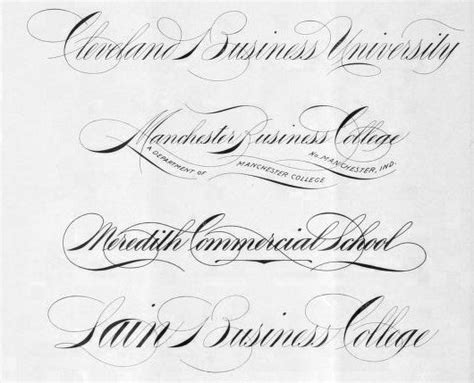 Cleveland Business University
Manchester Business College
A DEPARTMENT OF MANCHESTER COLLEGE No. MANCHESTER, IND.
Meredith Commercial School
Sain Business College